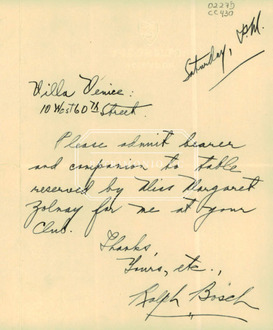 0227D
CC430
Saturday, P.M.
Villa Venice:
10 West 60th Street.
Please admit bearer
and companion to table
reserved by Miss Margaret
Zolnay for me at your
Club.
Thanks,
Yours, etc.,
Ralph Bosch